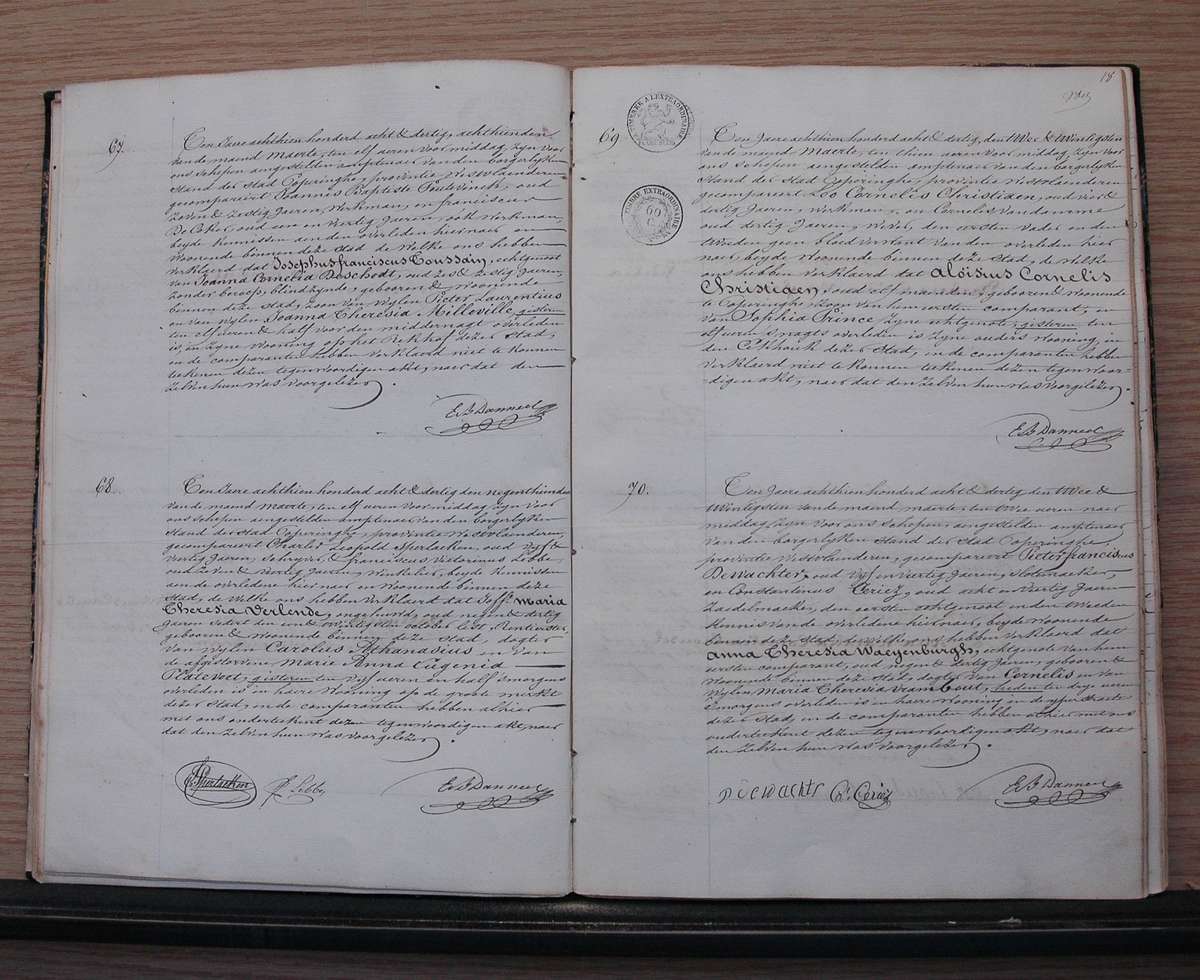 67.
Een Jaere achthien honderd acht & dertig, achthienden
van de maend Maerte, ten elf uren voor middag, zyn voor
ons schepen aengestelden amptenaer van den borgerlyken
Stand der stad Poperinghe, provintie Westvlaenderen
gecompareert Joannes Baptiste oud
Zeven & Zestig Jaeren, Werkman, en franciscus
De Coker, oud een en veertig Jaeren, ook Werkman,
beyde Kennissen aen den overleden hier naer en
Woonende binnen deze Stad de Welke ons hebben
verklaerd dat Josephus franciscus Toussain, echtgenoot
van Joanna Cornelia Deschodt, oud zes & Zestig Jaeren,
zonder beroep, blind zynde, geboren & woonende
binnen deze stad, Zoon van Wylen Pieter Laurentius
en van Wylen Joanna Theresia Milleville, gisteren
ten elf uren & half voor den middernagt overleden
is, in zyne Wooning op het Vekhof dezer Stad,
en de comparanten hebben verklaerd niet te konnen
teekenen dezen tegenwoordigen akt, naer dat den
Zelven hun Was voorgelezen.
E. B. Danneel
68.
Een Jaere achthien honderd acht & dertig den negenthienden
van de maend maerte, ten elf uren voor middag zyn voor
ons schepen aengestelden amptenaer van den borgerlyken
Stand der Stad Poperinghe, provintie Westvlaenderen,
gecompareert Charles Leopold Sperlaeken, oud vyf &
veertig Jaeren, & franciscus Victorinus Lebbe,
oud Zeven & veertig Jaeren, Winkelier, beyde Kennissen
aen de overledene hier naer & Woonende binnen deze
stad, de Welke ons hebben Verklaerd dat Jffe. Maria
Theresia Verlende, ongehuwd, oud negen & dertig
Jaeren sedert den een & twintigsten october lest, Rentenierster,
geboren & Woonende binnen deze Stad, dogter
van Wylen Carolus Athanasius en van
de afgestorvene Marie Anna Eugenia
Platevoet, gisteren ten vyf uren en half s'morgens
overleden is in haere Wooning op de groote merkt
dezer Stad, en de comparanten hebben alhier
met ons onderteekent dezen tegenwoordigen akt, naer
dat den Zelven hun Was voorgelezen.
Sperlaeken
F. Lebbe
E. B. Danneel
18
TIMBRE A L'EXTRAORDINAIRE
69
TIMBRE EXTRAORDINAIRE
Een Jaere achthien honderd acht & dertig, den twee & twintigsten
van de maend Maerte, ten thien uren voor middag, zyn voor
ons schepen aengestelden amptenaer van den borgerlyken
Stand der stad Poperinghe, provintie Westvlaenderen
gecompareert Leo Cornelis Christiaen, oud vier &
dertig Jaeren, Werkman, en Cornelis Vandamme
oud dertig Jaeren, Wever, den eersten vader en den
tweeden geen bloedverwant van den overleden hier
naer, beyde woonende binnen deze Stad, de Welke
ons hebben verklaerd dat Aloisius Cornelis
Christiaen, oud elf maenden, geboren & woonende
te Poperinghe, Zoon van hem eersten comparant, en
van Sophia Prince zyne echtgenote, gisteren ten
elf uren s'nagts overleden is zyne ouders wooning, in
den Eekhoek dezer Stad, en de comparanten hebben
verklaerd niet te konnen teekenen dezen tegenwoor-
digen akt, naer dat den Zelven hun Was voorgelezen.
E. B. Danneel
70.
Een Jaere achthien honderd acht & dertig den twee &
twintigsten van de maend maerte, ten twee uren naer
middag, zyn voor ons schepen, aengestelden amptenaer
van den borgerlyken Stand der stad Poperinghe,
provintie Westvlaenderen, gecompareert Pieter franciscus
DeWachter, oud vyf en veertig Jaeren, slotmaeker,
en Constantinus Periez, oud acht en veertig Jaeren
Zaedelmaeker, den eersten echtgenoot en den tweeden
Kennis van de overledene hier naer, beyde Woonende
binnen deze Stad, de Welke ons hebben verklaerd dat
Anna Theresia Waeyenburgh, echtgenote van hem
eersten comparant, oud negen & dertig Jaeren, geboren &
Woonende binnen deze Stad, dogter van Cornelis en van
Wylen Maria Theresia Vrambout, heden ten dry uren
s'morgens overleden is in haere Wooning in de
dezer Stad, en de comparanten hebben alhier met ons
onderteekent dezen tegenwoordigen akt, naer dat
den Zelven hun Was voorgelezen.
P. DeWachter
E. B. Danneel